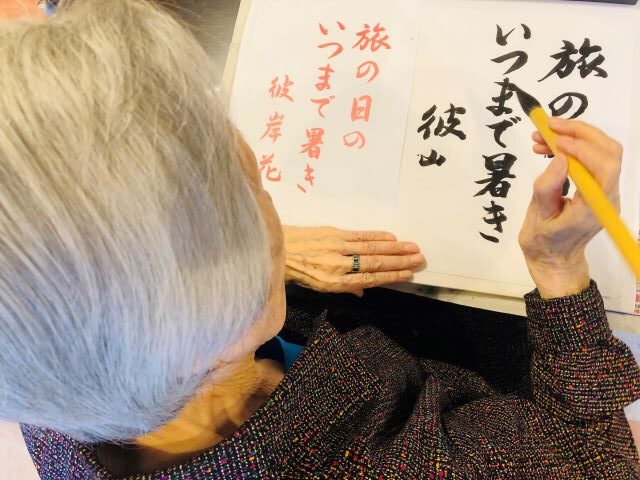 旅の
いつまで暑き
彼山
旅の日の
いつまで暑き
彼岸花